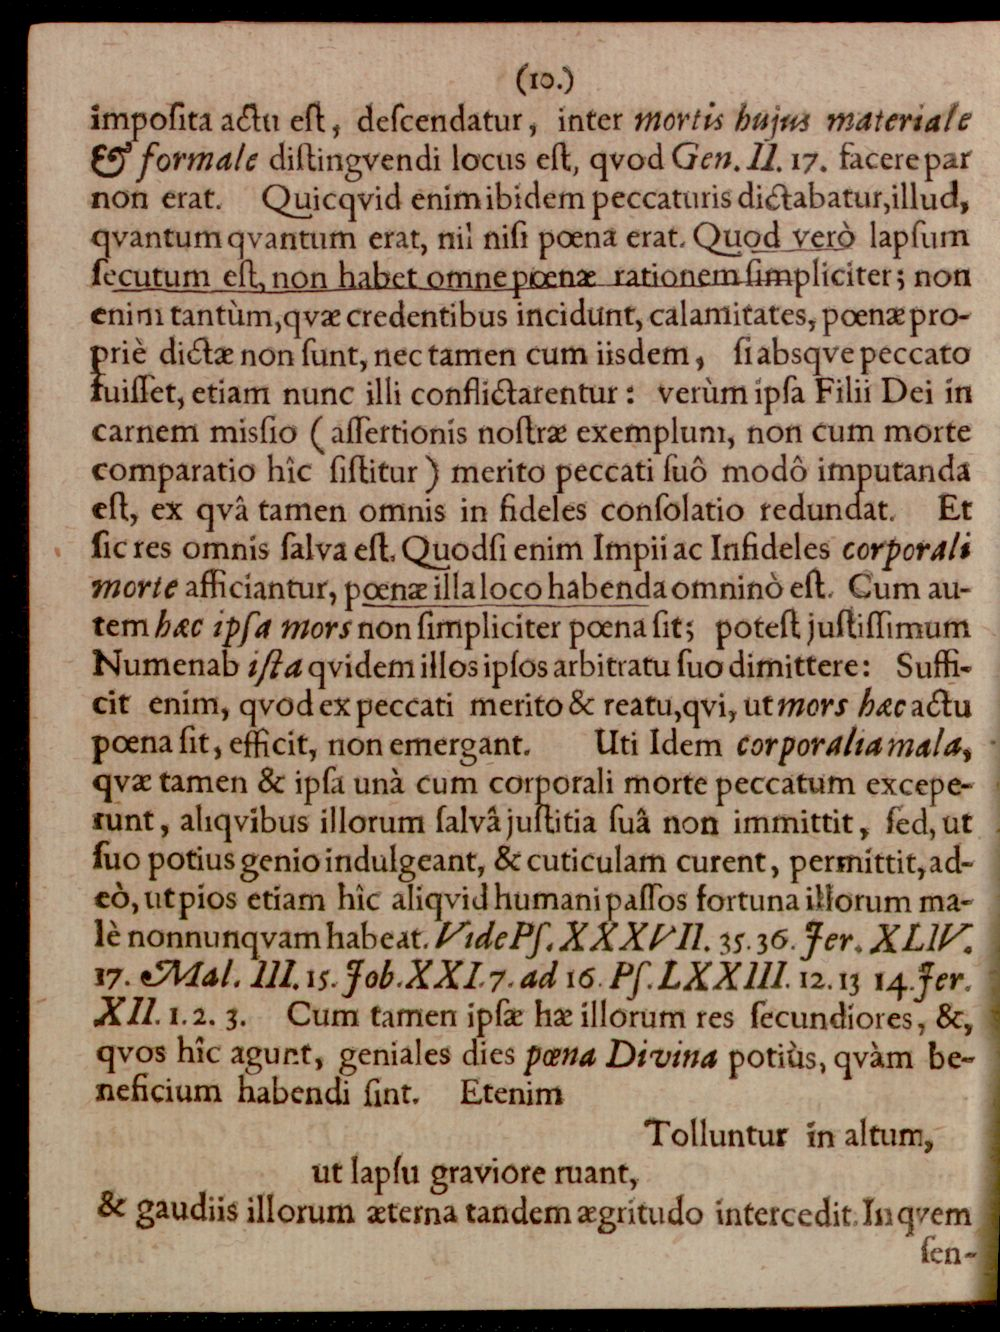 (10.)
imposita actu est, descendatur, inter mortis hujus materiale
& formale distingvendi locus est, qvod Gen. II. 17. facere par
non erat. Quicqvid enim ibidem peccaturis dictabatur, illud,
qvantum qvantum erat, nil nisi pœna erat. Quod verò lapsum
secutum est, non habet omne pœnæ rationem simpliciter; non
enim tantùm, qvæ credentibus incidunt, calamitates, pœnæ pro-
priè dictæ non sunt, nec tamen cum iisdem, si absqve peccato
fuisset, etiam nunc illi conflictarentur: verùm ipsa Filii Dei in
carnem missio (assertionis nostræ exemplum, non cum morte
comparatio hîc sistitur) merito peccati suô modô imputanda
est, ex qvâ tamen omnis in fideles consolatio redundat. Et
sic res omnis salva est. Quodsi enim Impii ac Infideles corporali
morte afficiantur, pœnæ illa loco habenda omninò est. Cum au-
tem hæc ipsa mors non simpliciter pœna sit; potest justissimum
Numen ab ista qvidem illos ipsos arbitratu suo dimittere: Suffi-
cit enim, qvod ex peccati merito & reatu, qvi, ut mors hæc actu
pœna sit, efficit, non emergant. Uti Idem corporalia mala,
qvæ tamen & ipsa unà cum corporali morte peccatum excepe-
runt, aliqvibus illorum salvâ justitia suâ non immittit, sed, ut
suo potius genio indulgeant, & cuticulam curent, permittit, ad-
eò, ut pios etiam hîc aliqvid humani passos fortuna illorum ma-
lè nonnunqvam habeat. Vide Ps. XXXVII. 35. 36. Jer. XLIV.
17. Mal. III. 15. Job. XXI. 7. ad 16. Ps. LXXIII. 12. 13 14. Jer.
XII. 1. 2. 3. Cum tamen ipsæ hæ illorum res secundiores, &,
qvos hîc agunt, geniales dies pœna Divina potiùs, qvàm be-
neficium habendi sint. Etenim
Tolluntur in altum,
ut lapsu graviore ruant,
& gaudiis illorum æterna tandem ægritudo intercedit. In qvem
sen-